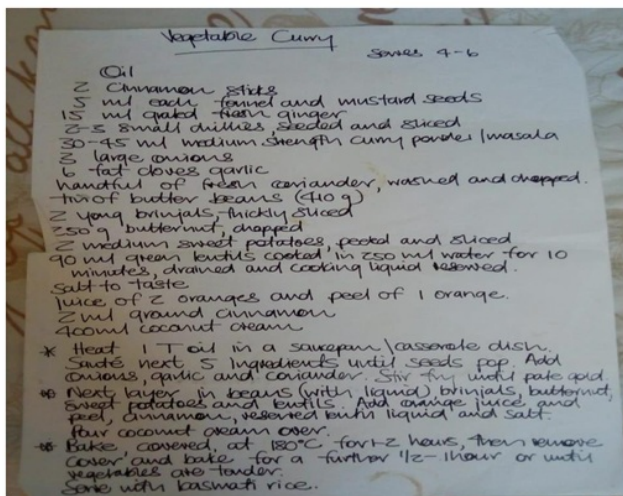 Vegetable Curry
serves 4-6
Oil
2 Cinnamon sticks
5 ml each fennel and mustard seeds
15 ml grated fresh ginger
2-3 small chillies, seeded and sliced
30-45 ml medium strength curry powder/masala
3 large onions
6 fat cloves garlic
handful of fresh coriander, washed and chopped.
tin of butter beans (410 g)
2 young brinjals, thickly sliced
250 g butternut, chopped
2 medium sweet potatoes, peeled and sliced
90 ml green lentils cooked in 250 ml water for 10
minutes, drained and cooking liquid reserved.
Salt to taste
juice of 2 oranges and peel of 1 orange.
2 ml ground cinnamon
400ml coconut cream
* Heat 1 T oil in a saucepan/casserole dish.
Sauté next 5 ingredients until seeds pop. Add
onions, garlic and coriander. Stir fry until pale gold.
* Next layer in beans (with liquid) brinjals, butternut,
sweet potatoes and lentils. Add orange juice and
peel, cinnamon, reserved lentil liquid and salt.
Pour coconut cream over.
* Bake, covered, at 180°C for 1-2 hours, then remove
cover and bake for a further 1/2-1 hour or until
vegetables are tender.
Serve with basmati rice.